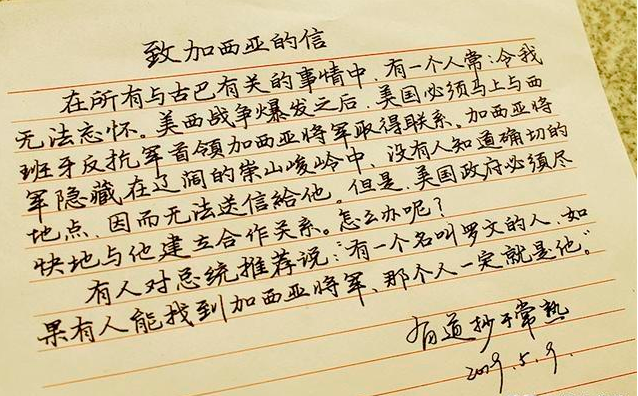 致加西亚的信
在所有与古巴有关的事情中，有一个人常：令我
无法忘怀。美西战争爆发之后，美国必须马上与西
班牙反抗军首领加西亚将军取得联系。加西亚将
军隐藏在辽阔的崇山峻岭中，没有人知道确切的
地点，因而无法送信給他。但是，美国政府必须尽
快地与他建立合作关系。怎么办呢？
有人对总统推荐说：“有一个名叫罗文的人，如
果有人能找到加西亚将军，那个人一定就是他。”
有道抄于常熟
2009.5.9.